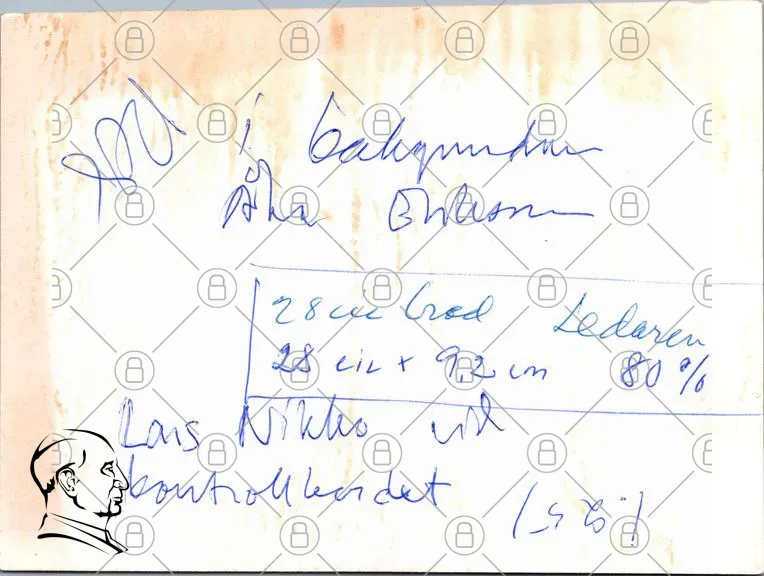 i bakgrunden
Åke Eriksson
28 cm bred Ledaren
28 cm x 9,2 cm 80 %
Lars Nikko vid
kontrollbordet